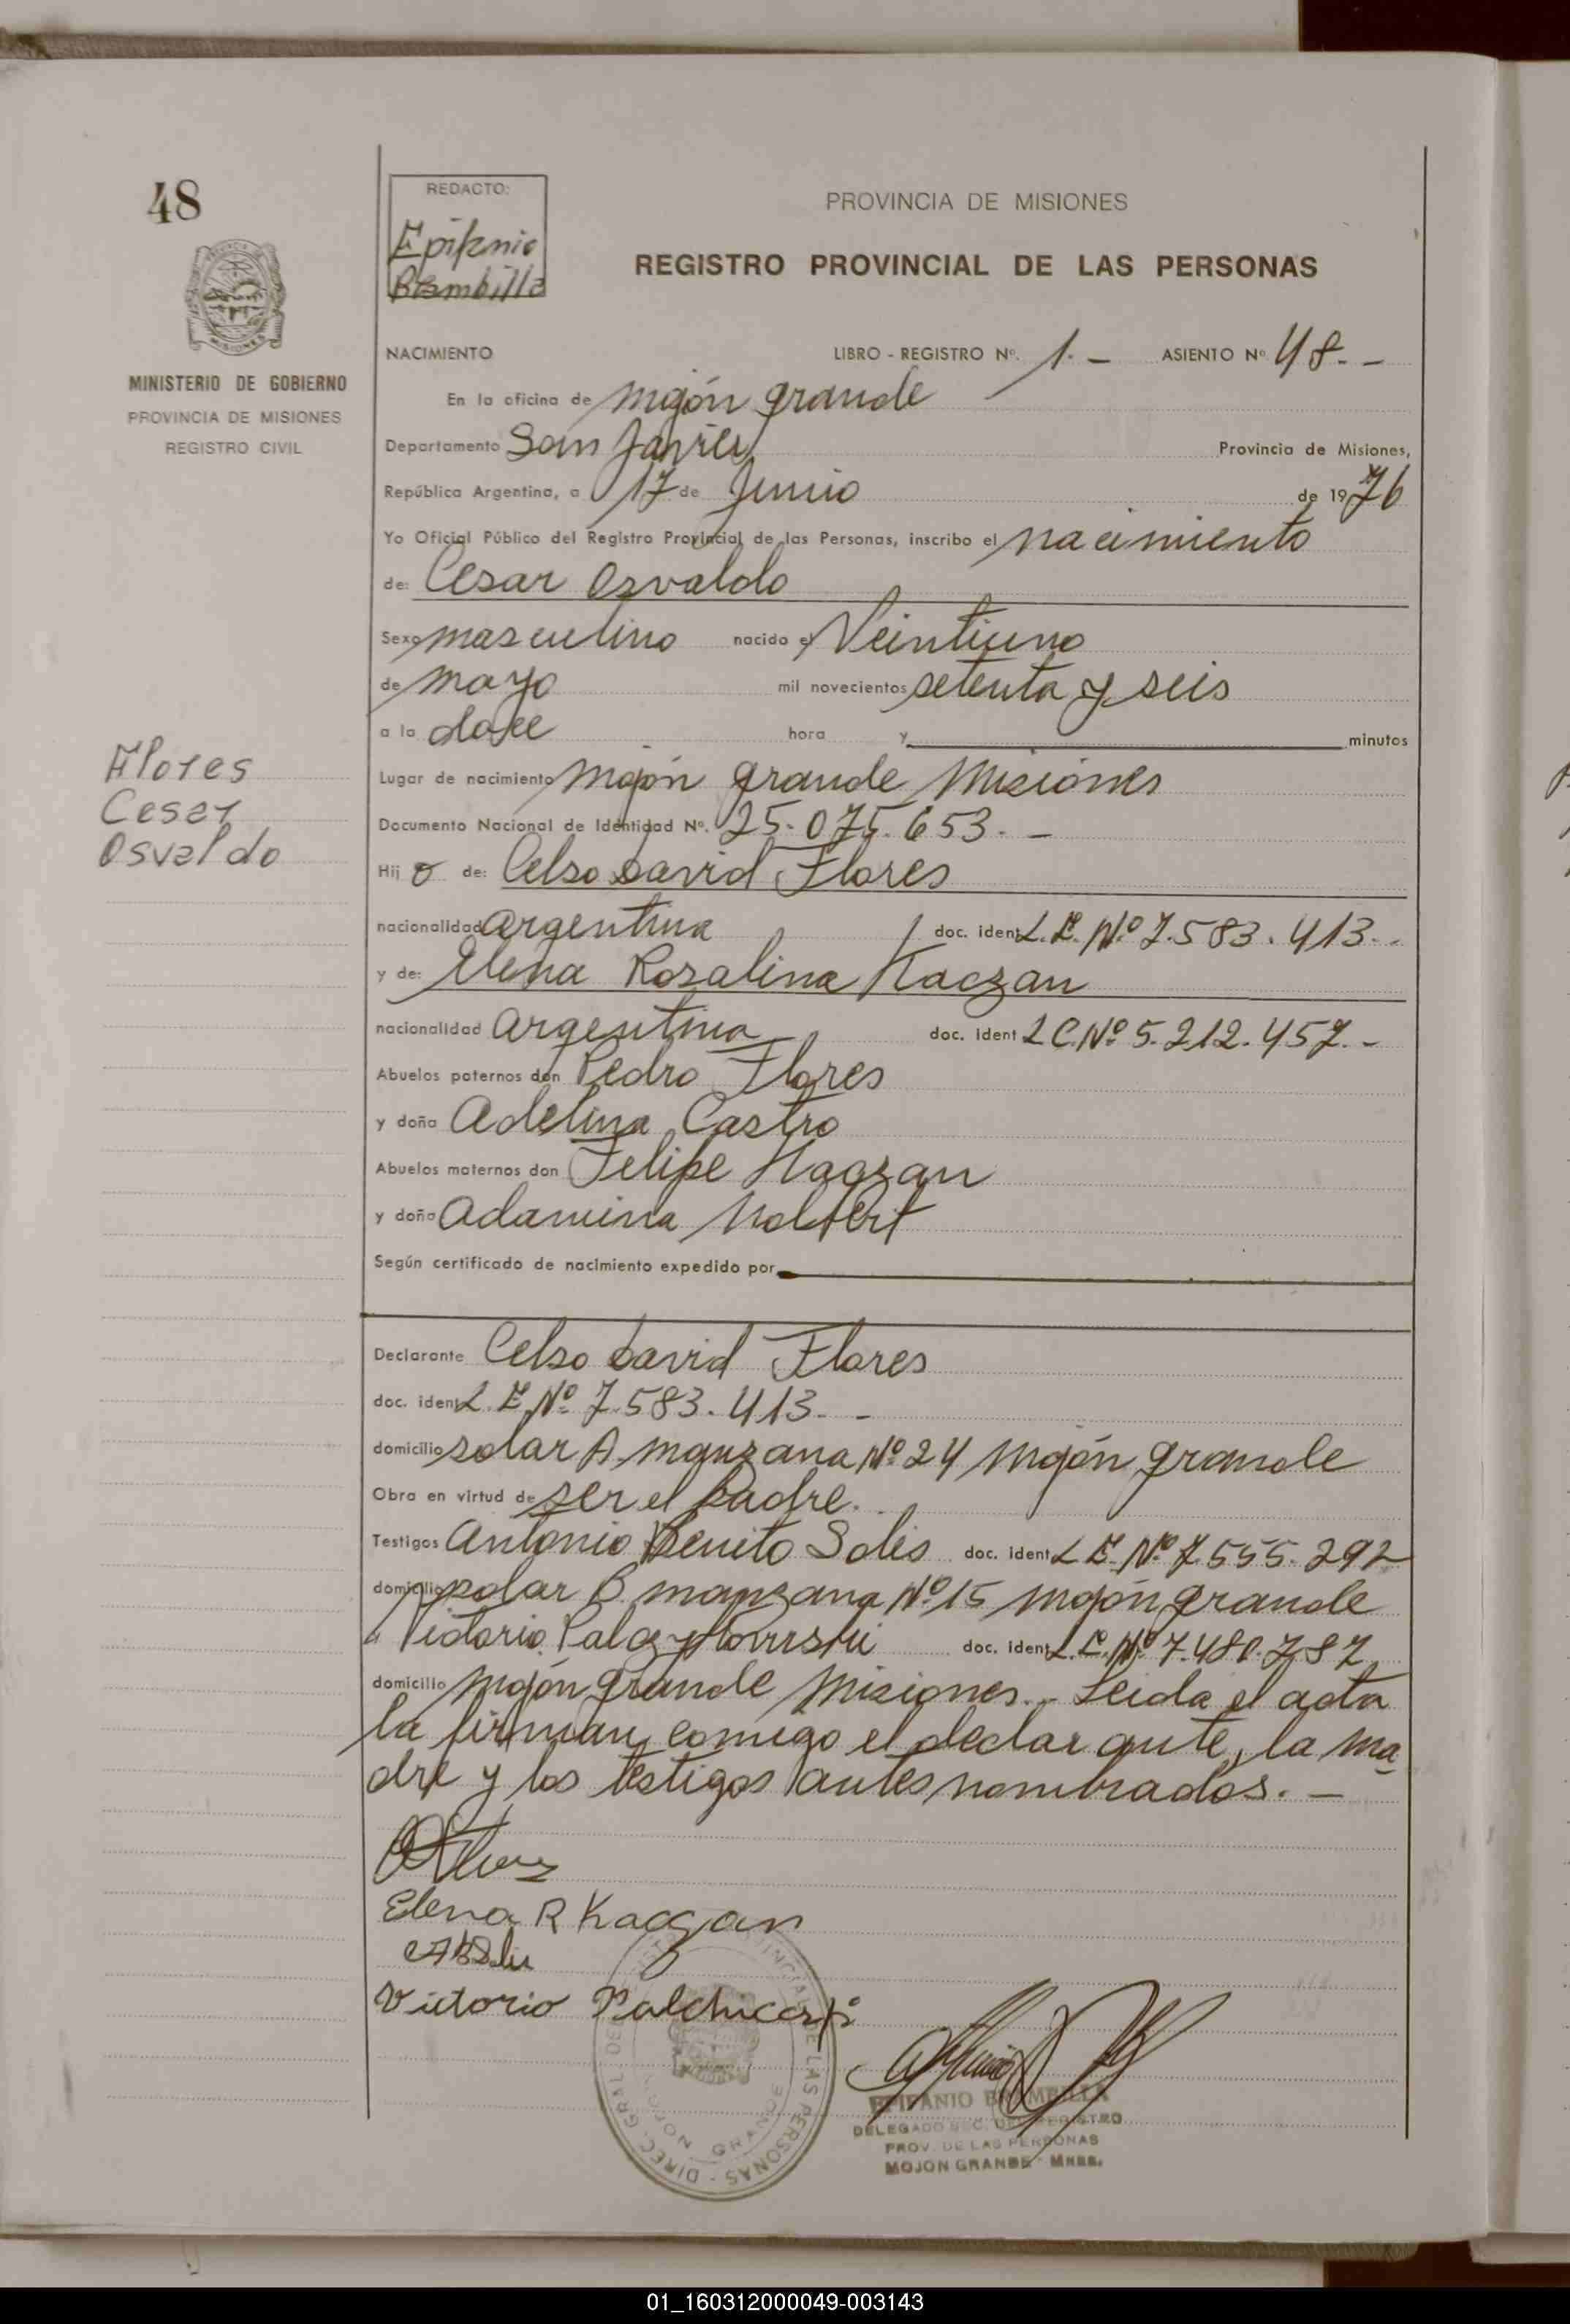 48
REDACTO:
Epifanio
Brambilla
PROVINCIA DE MISIONES
REGISTRO PROVINCIAL DE LAS PERSONAS
MISIONES
MINISTERIO DE GOBIERNO
PROVINCIA DE MISIONES
REGISTRO CIVIL
NACIMIENTO LIBRO - REGISTRO Nº. 1.- ASIENTO Nº 48.-
En la oficina de Mojón grande
Departamento San Javier Provincia de Misiones,
República Argentina, a 17 de Junio de 1976
Yo Oficial Público del Registro Provincial de las Personas, inscribo el nacimiento
de: Cesar Osvaldo
Sexo masculino nacido el Veintiuno
de mayo mil novecientos setenta y seis
a la doce hora y minutos
Flores
Cesar
Osvaldo
Lugar de nacimiento Mojón grande Misiones
Documento Nacional de Identidad Nº. 25.075.653.-
Hijo de: Celso David Flores
nacionalidad argentina doc. ident L.E. Nº 7.583.413.-
y de: Elena Rosalina Kaczan
nacionalidad argentina doc. ident L C. Nº 5.212.457.-
Abuelos paternos don Pedro Flores
y doña Adelina Castro
Abuelos maternos don Felipe Kaczan
y doña Adamina
Según certificado de nacimiento expedido por
Declarante Celso David Flores
doc. ident L.E. Nº 7.583.413.-
domicilio solar A manzana Nº 24 Mojón grande
Obra en virtud de ser el padre.
Testigos Antonio Benito Solis doc. ident L E. Nº 7.555.292
domicilio solar B manzana Nº 15 Mojón grande
doc. ident L.E. Nº 7.480.787
domicilio Mojón grande Misiones.- Leida el acta
la firman comigo el declarante, la ma
dre y los testigos antes nombrados.-
Elena R Kaczan
Victorio
DIREC. GRAL. DEL REGISTRO PROVINCIAL DE LAS PERSONAS
MOJON GRANDE
EPIFANIO BRAMBILLA
DELEGADO SEC. DEL REGISTRO
PROV. DE LAS PERSONAS
MOJON GRANDE - MNES.
01_160312000049-003143